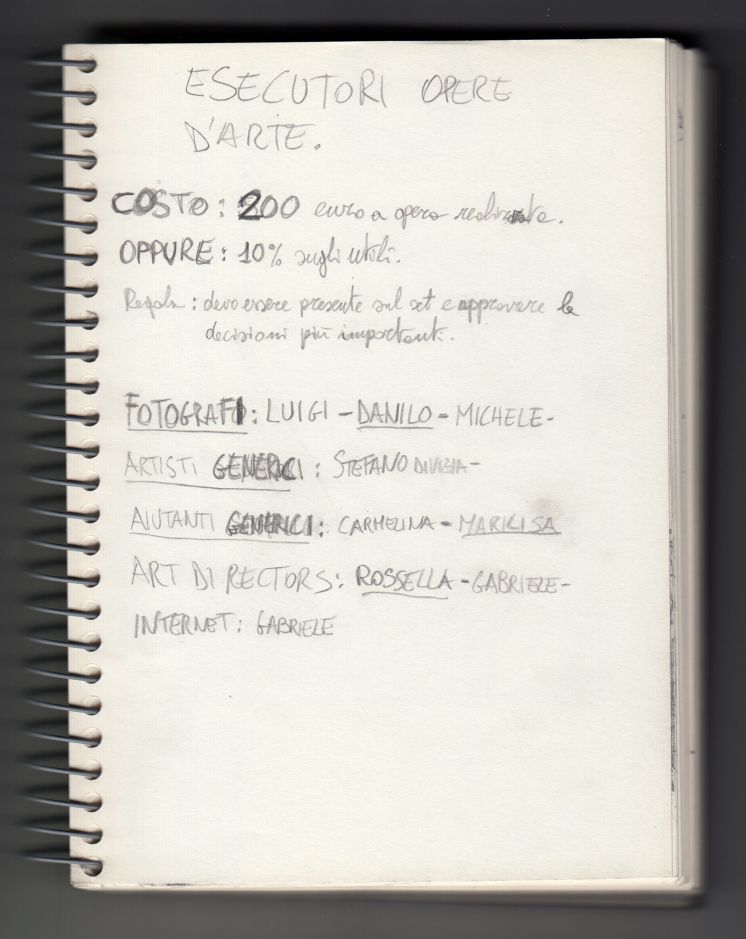 ESECUTORI OPERE
D'ARTE.
COSTO: 200 euro a opera realizzata.
OPPURE: 10% sugli utili.
Regola: devo essere presente sul set e approvare le
decisioni più importanti.
FOTOGRAFI: LUIGI - DANILO - MICHELE -
ARTISTI GENERICI: STEFANO DIVIZIA -
AIUTANTI GENERICI: CARMELINA - MARILISA
ART DIRECTORS: ROSSELLA - GABRIELE -
INTERNET: GABRIELE